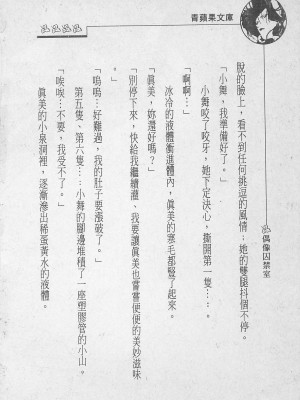 青蘋果文庫
偶像囚禁室
脫的臉上，看不到任何挑逗的風情；她的雙腿抖個不停。
「小舞，我準備好了。」
小舞咬了咬牙，她下定決心，撕開第一隻…。
「啊啊…」
冰冷的液體衝進體內，真美的寒毛都豎了起來。
「真美，妳還好嗎？」
「別停下來，快給我繼續灌、我要讓真美也嘗嘗便便的美妙滋味
。」
「嗚嗚…好難過，我的肚子要漲破了。」
第五隻、第六隻……小舞的腳邊堆積了一座塑膠管的小山。
「唉唉…不要，我受不了。」
真美的小泉洞裡，逐漸滲出稀蛋黃水的液體。